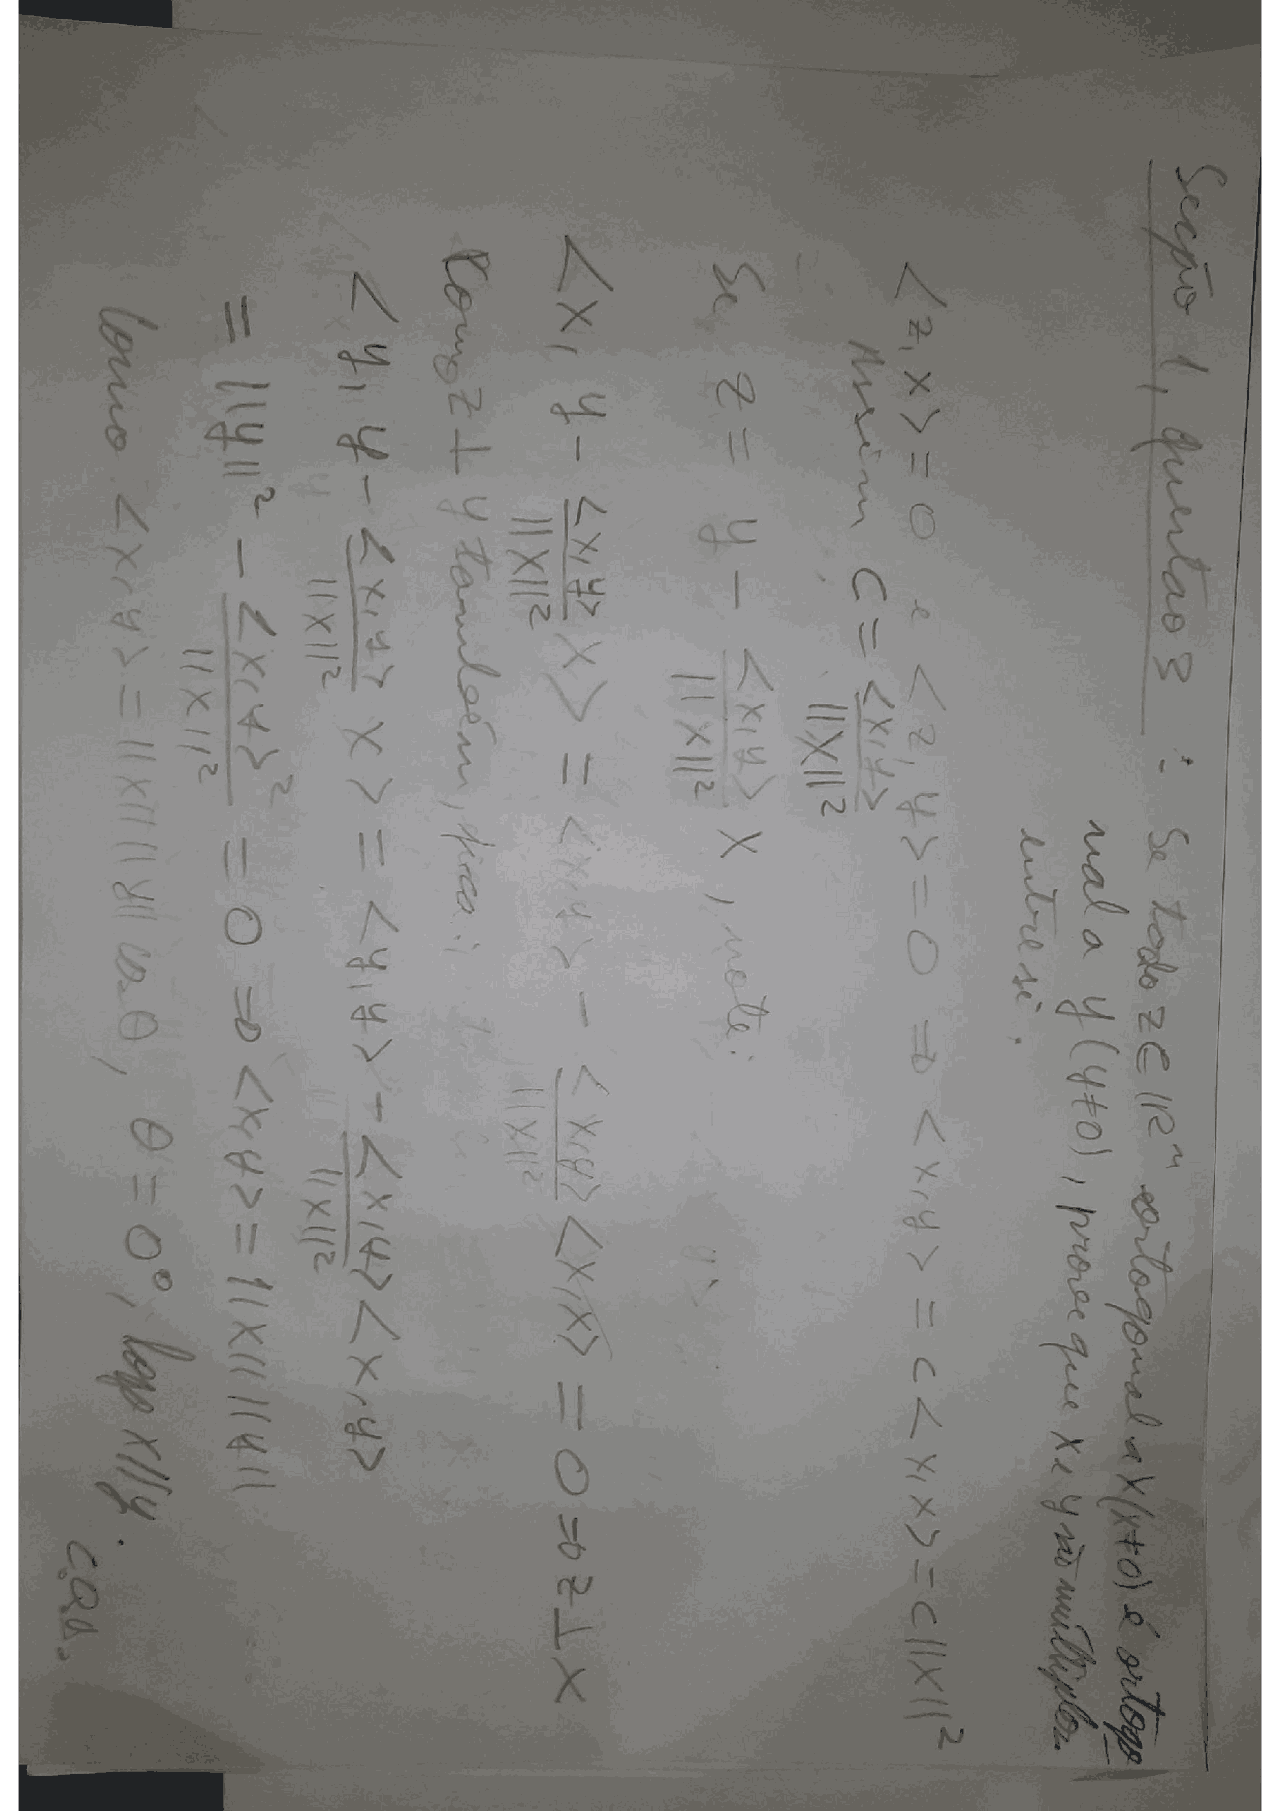 Secção 1, questão 3 : Se todo z ∈ ℝⁿ ortogonal a x (x≠0) é ortogo
nal a y (y≠0), prove que x e y são múltiplos
entre si.
<z, x> = 0 e <z, y> = 0 ⇒ <x, y> = c<x, x> = c||x||²
Assim c = <x, y>/||x||²
Se z = y − <x, y>/||x||² x, note:
<x, y − <x, y>/||x||² x> = <x, y> − <x, y>/||x||² <x, x> = 0 ⇒ z ⊥ x
Como z ⊥ y também, fica:
<y, y − <x, y>/||x||² x> = <y, y> − <x, y>/||x||² <x, y>
= ||y||² − <x, y>²/||x||² = 0 ⇒ <x, y> = ||x|| ||y||
Como <x, y> = ||x|| ||y|| cos θ, θ = 0°, logo x // y.
C.Q.D.